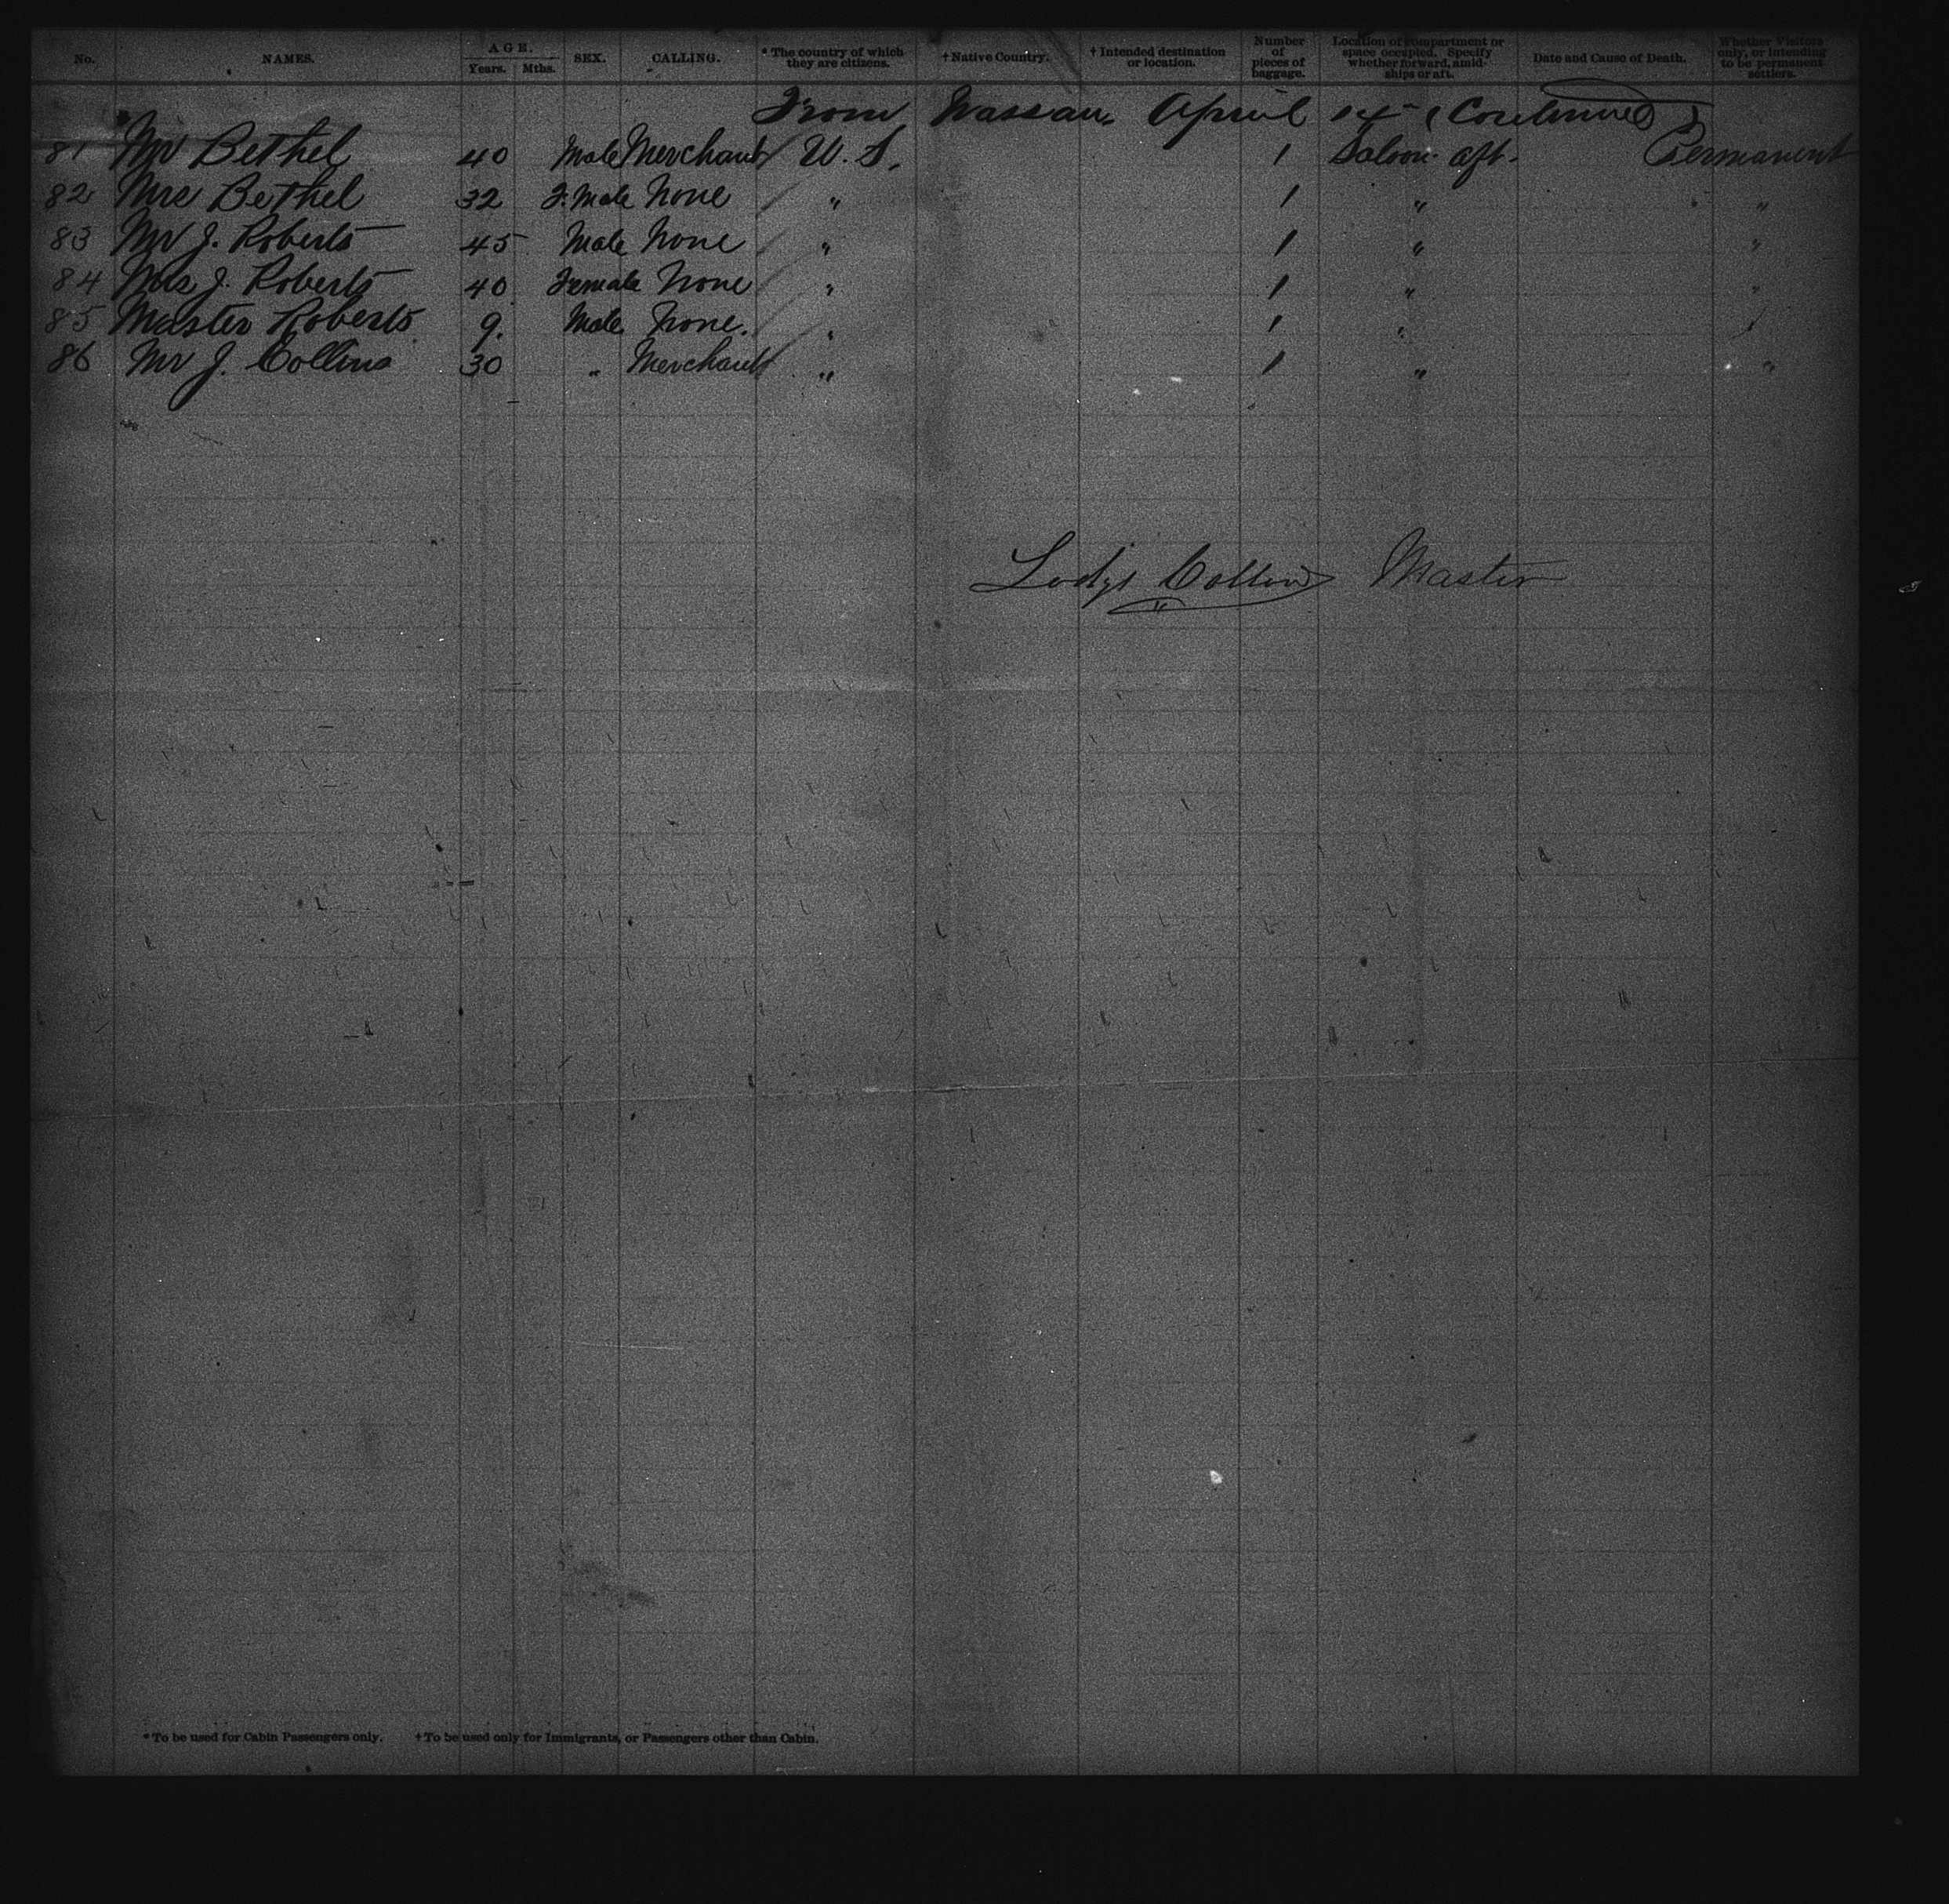 No. NAMES. AGE. Years. Mths. SEX. CALLING. * The country of which they are citizens. † Native Country. † Intended destination or location. Number of pieces of baggage. Location of compartment or space occupied. Specify whether forward, amid-ships or aft. Date and Cause of Death. Whether Visitors only, or intending to be permanent settlers.
From Nassau, April 14 (Continued)
81 Mr Bethel 40 Male Merchant U. S. 1 Saloon aft. Permanent
82 Mrs Bethel 32 F. Male None " 1 " "
83 Mr J. Roberts 45 Male None " 1 " "
84 Mrs J. Roberts 40 Female None " 1 " "
85 Master Roberts 9. Male None. " 1 " "
86 Mr J. Collins 30 " Merchant " 1 " "
Collins Master
* To be used for Cabin Passengers only. † To be used only for Immigrants, or Passengers other than Cabin.